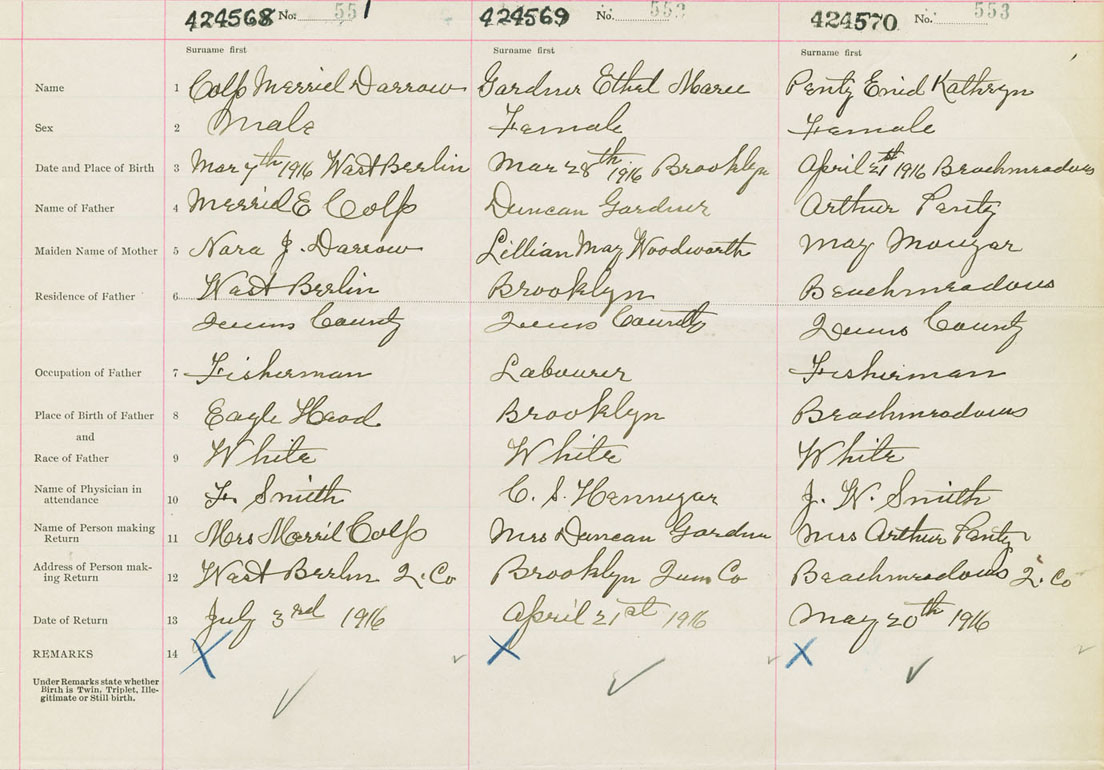 424568 No. 551 424569 No. 553 424570 No. 553
Surname first Surname first Surname first
Name 1 Colp Merriel Darrow Gardner Ethel Marie Penty Enid Kathryn
Sex 2 Male Female Female
Date and Place of Birth 3 Mar 7th 1916 West Berlin Mar 28th 1916 Brooklyn April 21st 1916 Beachmeadows
Name of Father 4 Merriel E Colp Duncan Gardner Arthur Penty
Maiden Name of Mother 5 Nora J. Darrow Lillian May Woodworth May
Residence of Father 6 West Berlin Brooklyn Beachmeadows
Queens County Queens County Queens County
Occupation of Father 7 Fisherman Labourer Fisherman
Place of Birth of Father 8 Eagle Head Brooklyn Beachmeadows
and
Race of Father 9 White White White
Name of Physician in
attendance 10 Smith C. S. Hennigar J. W. Smith
Name of Person making
Return 11 Mrs Merril Colp Mrs Duncan Gardner Mrs Arthur Penty
Address of Person mak-
ing Return 12 West Berlin Q. Co Brooklyn Co Beachmeadows Q. Co
Date of Return 13 July 3rd 1916 April 21st 1916 May 20th 1916
REMARKS 14 X X X
Under Remarks state whether
Birth is Twin, Triplet, Ille-
gitimate or Still birth.